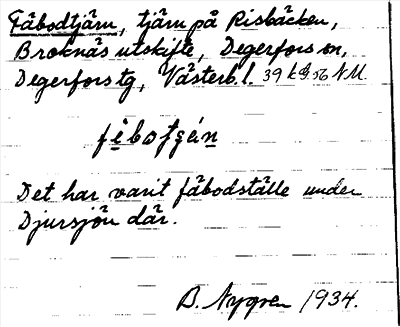 Fäbodtjärn, tjärn på Risbäcken,
Broknäs utskifte, Degerfors sn,
Degerfors tg, Västerb. l.
Det har varit fäbodställe under
Djursjön där.
B. Nygren 1934.